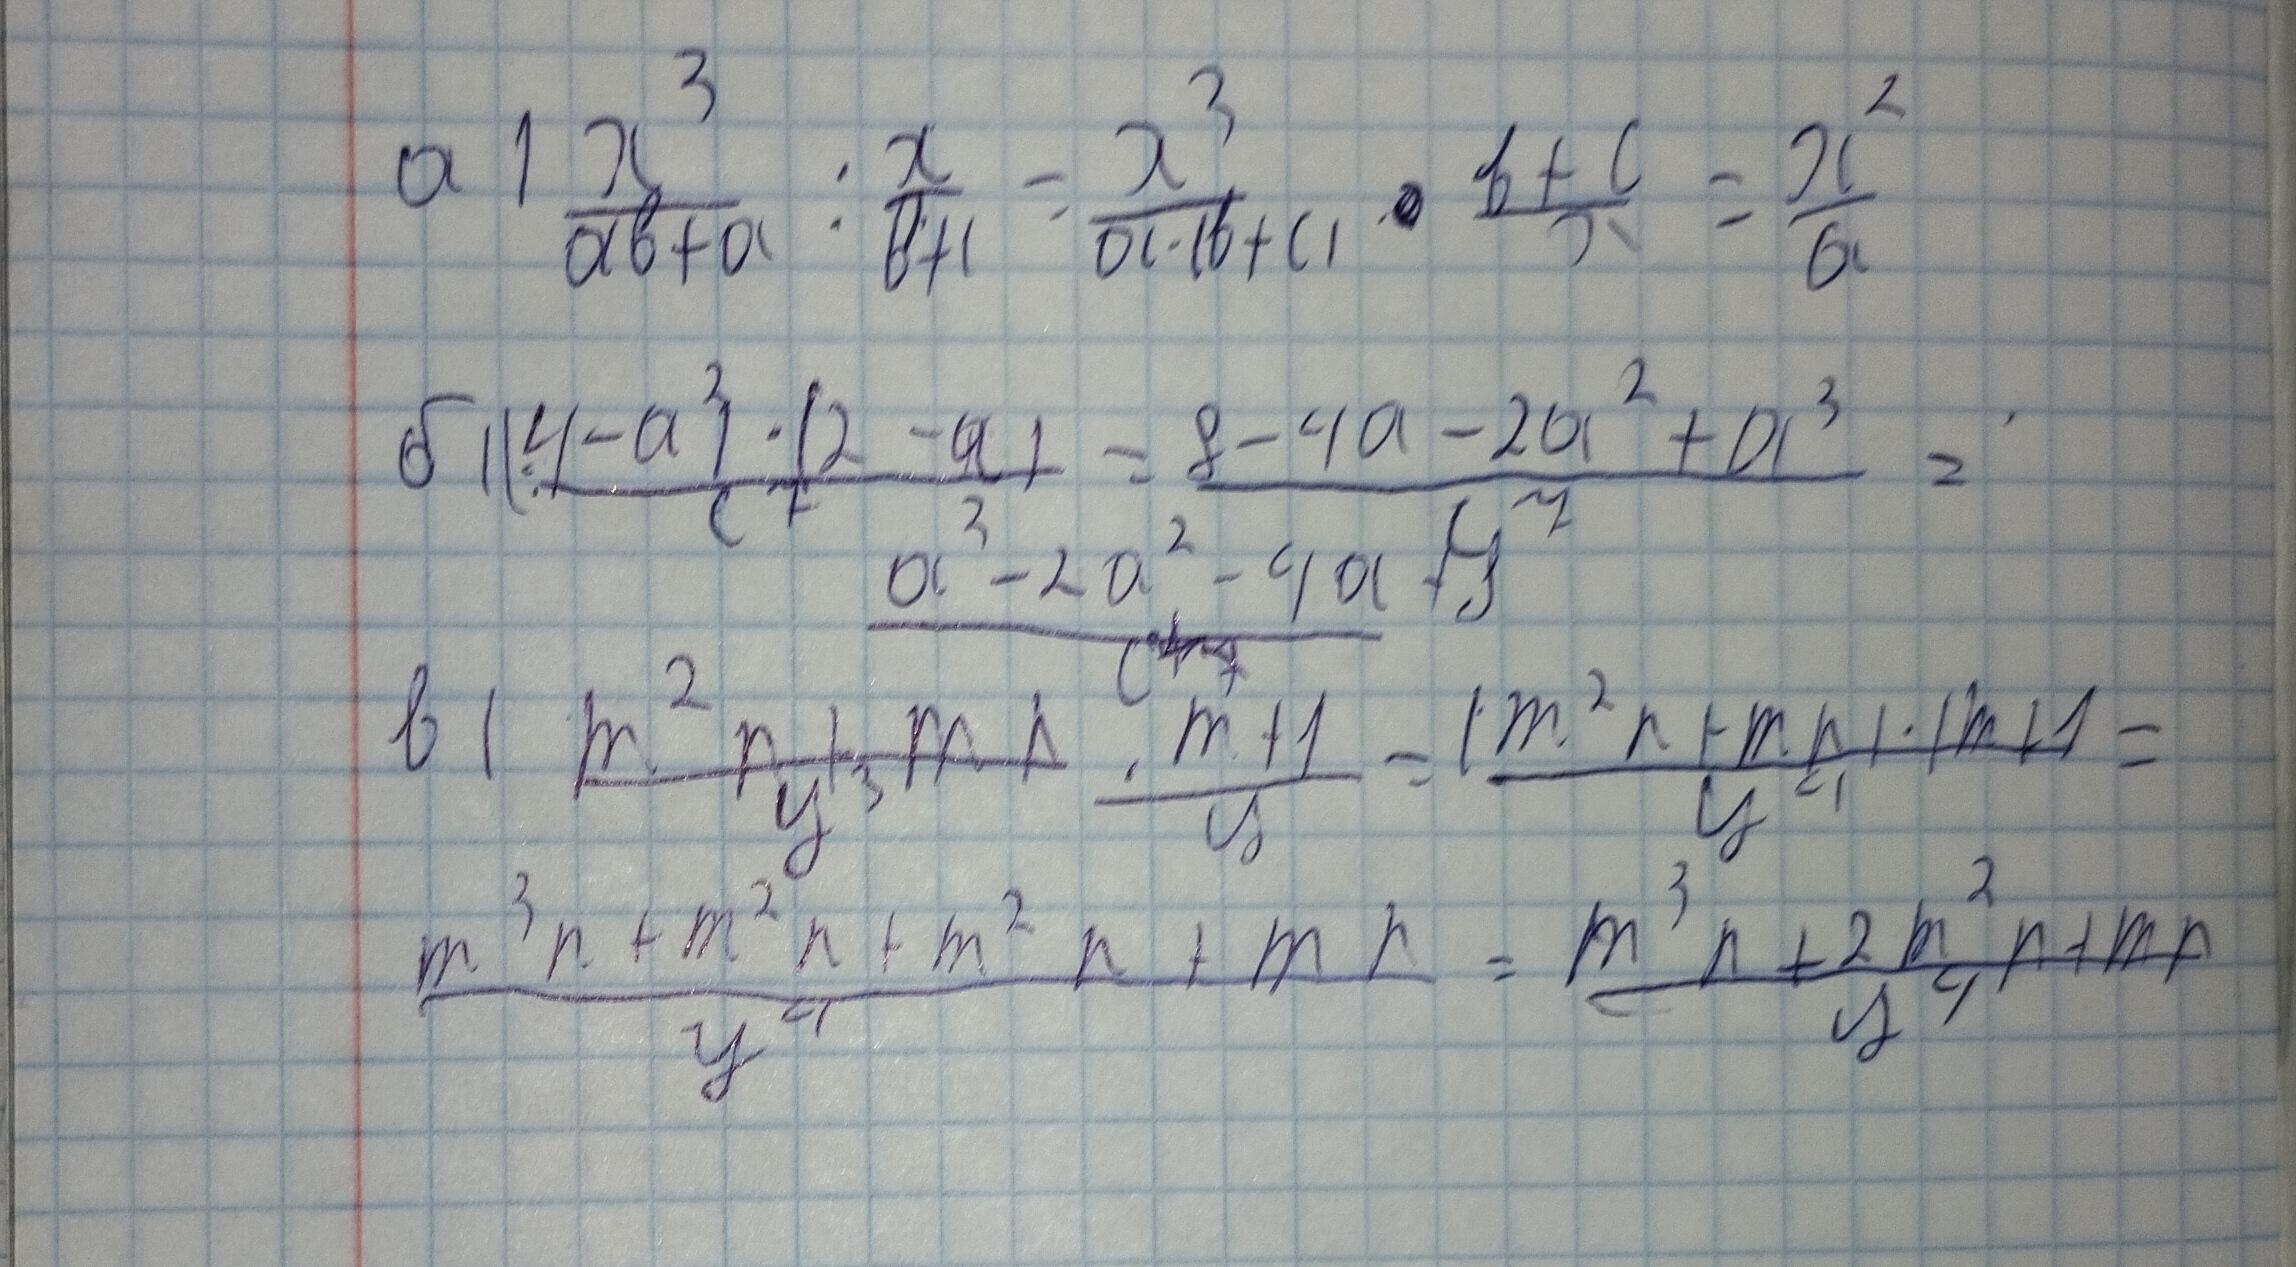 а) x³/(ab+a) : x/(b+1) = x³/(a·(b+1)) · (b+1)/x = x²/a
б) ((4-a²)·(2-a))/c⁷ = (8-4a-2a²+a³)/y⁷ =
(a³-2a²-4a+8)/c⁷
в) (m²n+mn)/y³ · (m+1)/y = ((m²n+mn)·(m+1)/y⁴ =
(m³n+m²n+m²n+mn)/y⁴ = (m³n+2m²n+mn)/y⁴